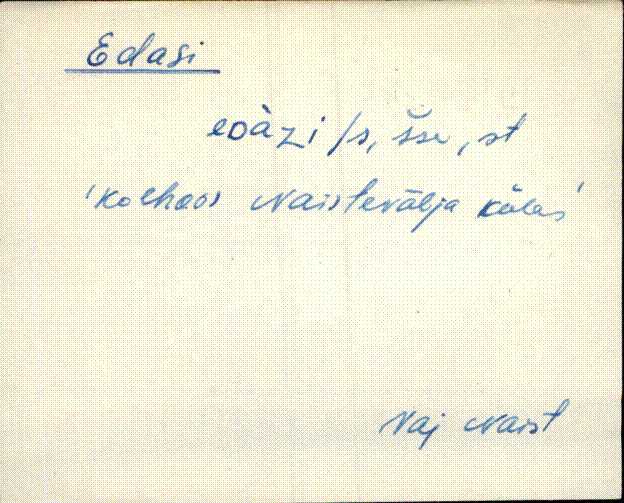 Edasi
eᴅàzi /s, šse, st
'kolhoos Naistevälja külas'
Vaj Naist